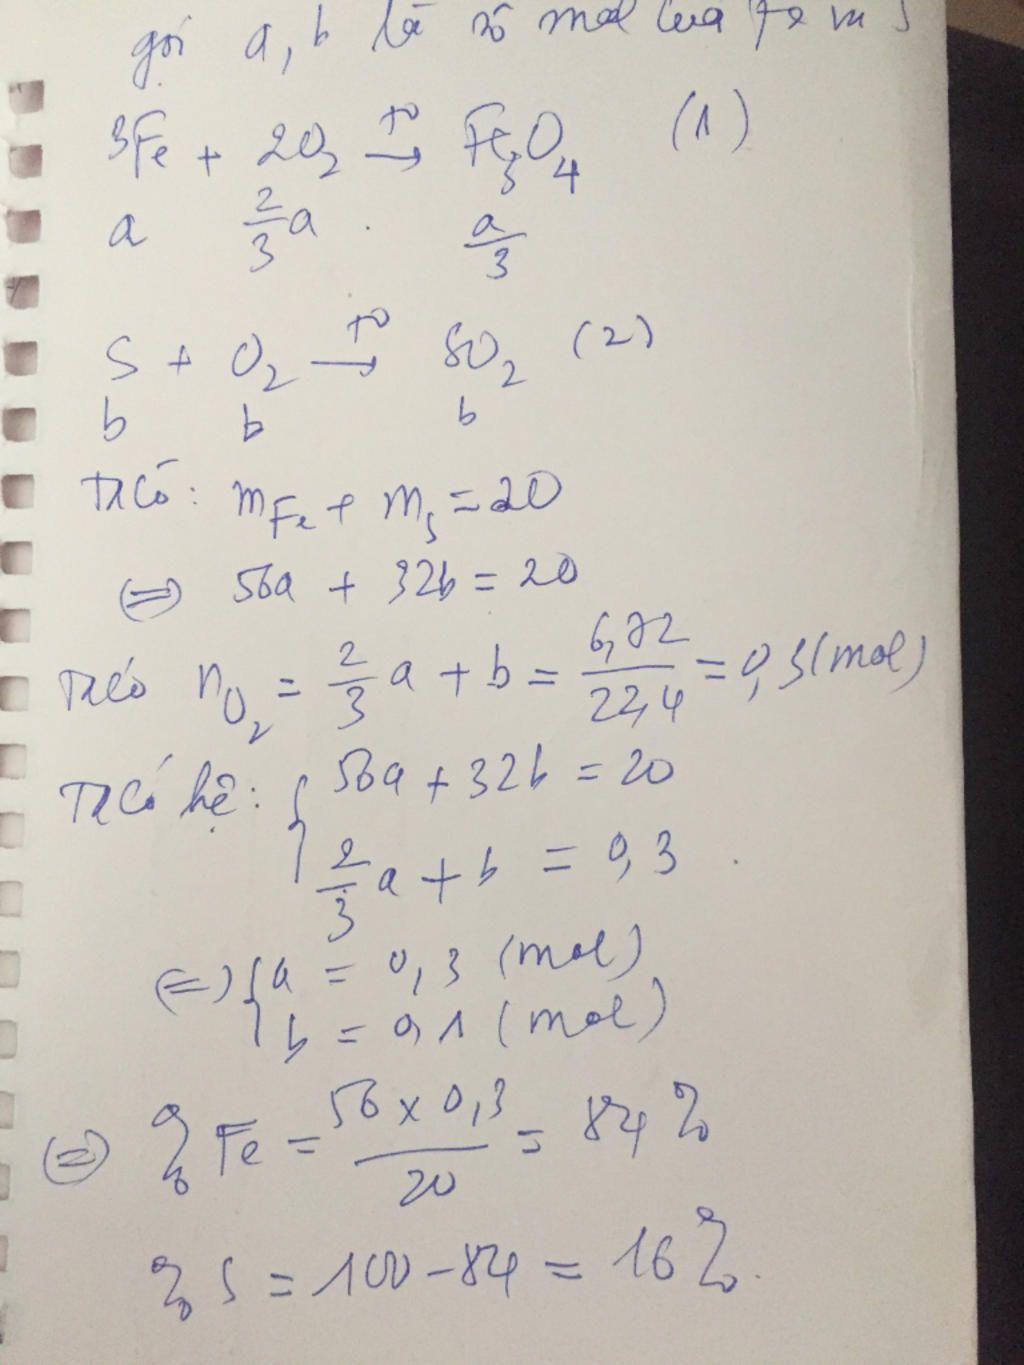 gọi a, b là số mol của Fe và S
3Fe + 2O₂ →(t⁰) Fe₃O₄ (1)
a 2/3a . a/3
S + O₂ →(t⁰) SO₂ (2)
b b b
Ta có: m_Fe + m_S = 20
(=) 56a + 32b = 20
Ta có n_O₂ = 2/3 a + b = 6,72/22,4 = 0,3 (mol)
Ta có hệ: { 56a + 32b = 20
2/3 a + b = 0,3 .
(=) { a = 0,3 (mol)
b = 0,1 (mol)
(=) % Fe = 56 x 0,3/20 = 84 %
% S = 100 - 84 = 16 %.